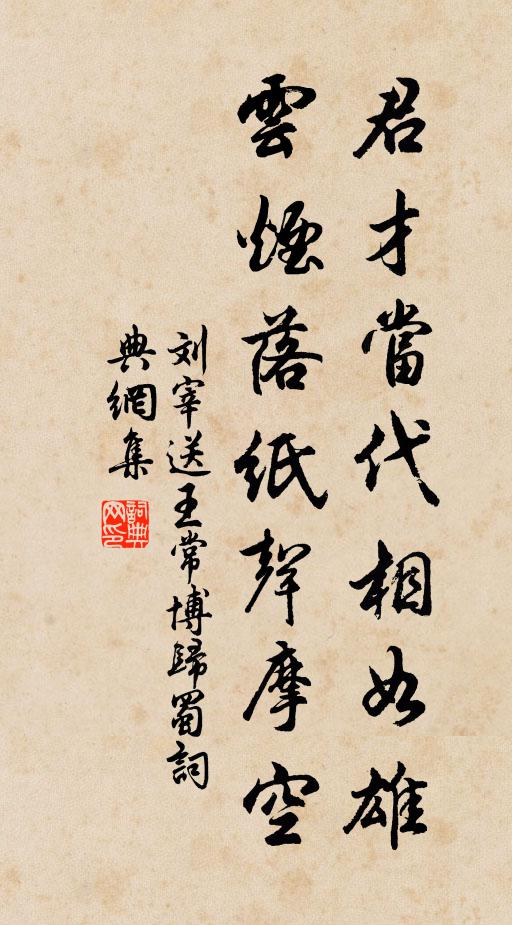 君才當代相如雄
雲煙落紙聲摩空
刘宰送王常博歸蜀詞
典網集
詞典网印